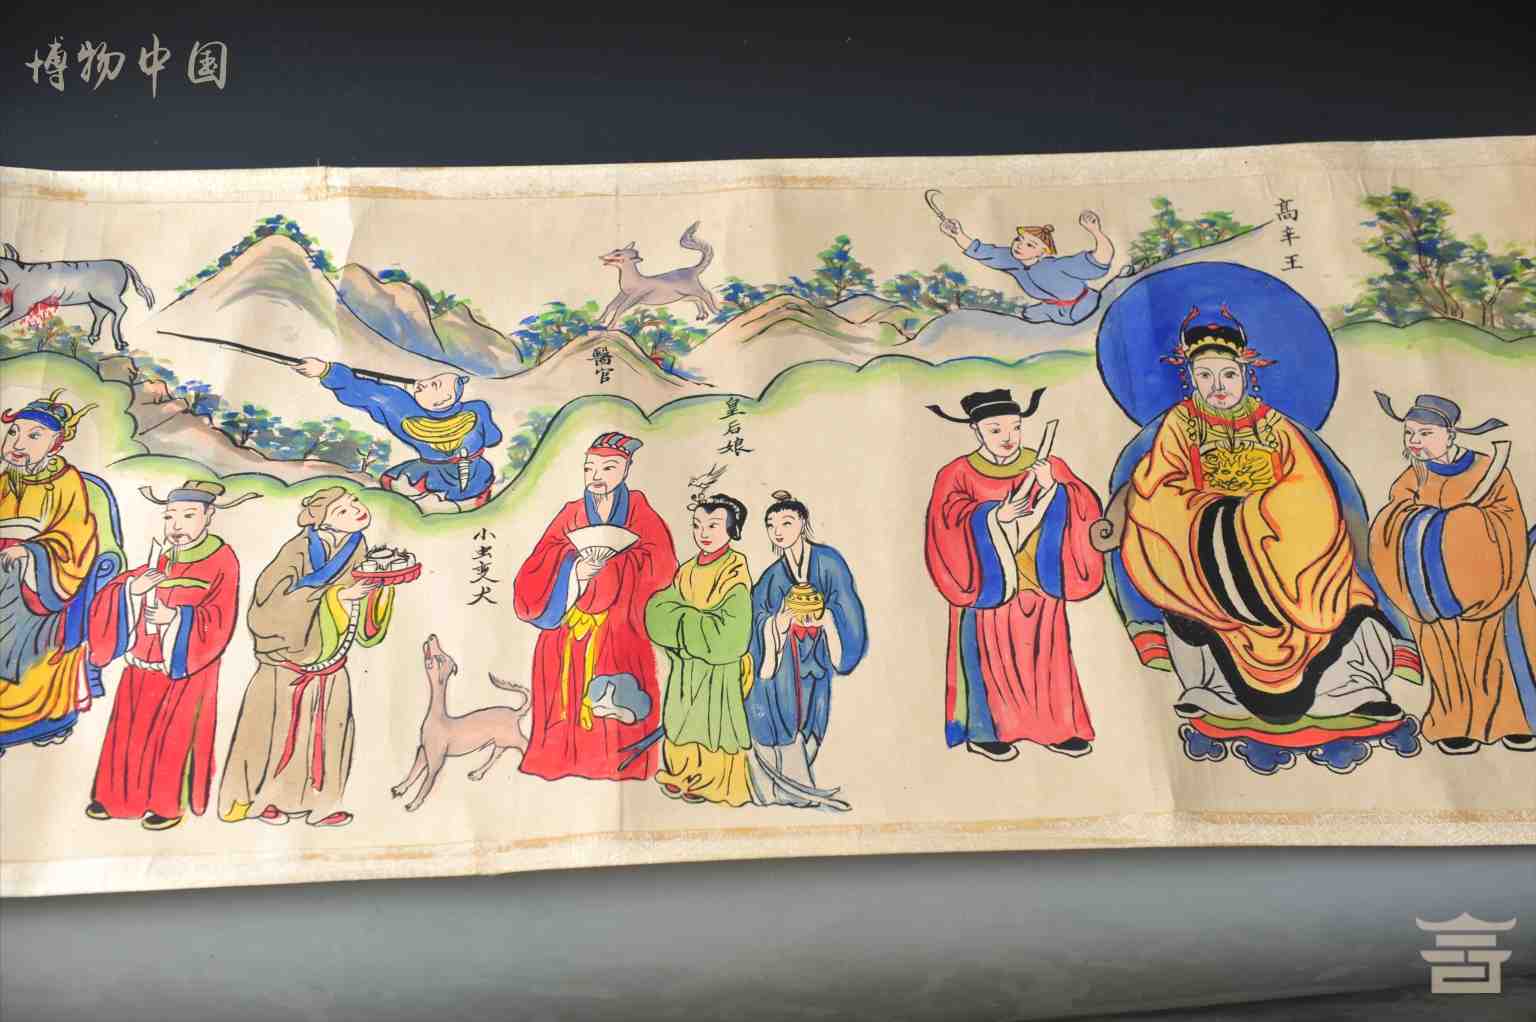 博物中国
醫官
皇后娘
小虫变犬
高辛王